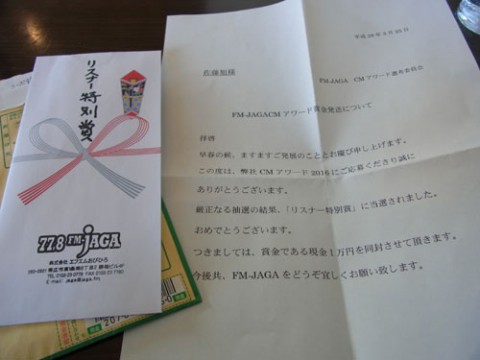 リスナー特別賞
77.8 FM-JAGA
株式会社 エフエムおびひろ
FM-JAGA CMアワード選考委員会
FM-JAGACMアワード賞金発送について
拝啓
早春の候、ますますご発展のこととお慶び申し上げます。
この度は、弊社CMアワード2016にご応募くださり誠に
ありがとうございます。
厳正なる抽選の結果、「リスナー特別賞」に当選されました。
おめでとうございます。
つきましては、賞金である現金1万円を同封させて頂きます。
今後共、FM-JAGAをどうぞ宜しくお願い致します。